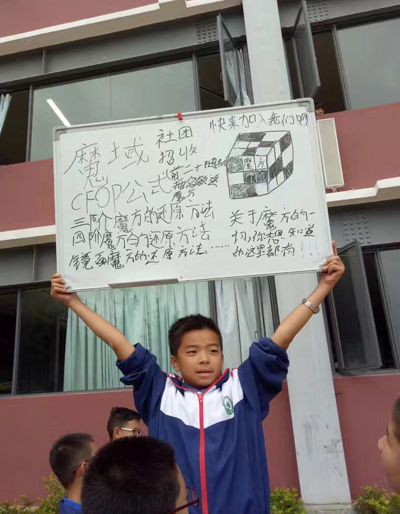 魔域 社团招收 快来加入我们吧
前二十名
魔方
CFOP公式
魔方
三阶个魔方的还原方法
四阶魔方的还原方法
镜面魔方的还原方法……
关于魔方的一
切,你想知道
的这里都有!